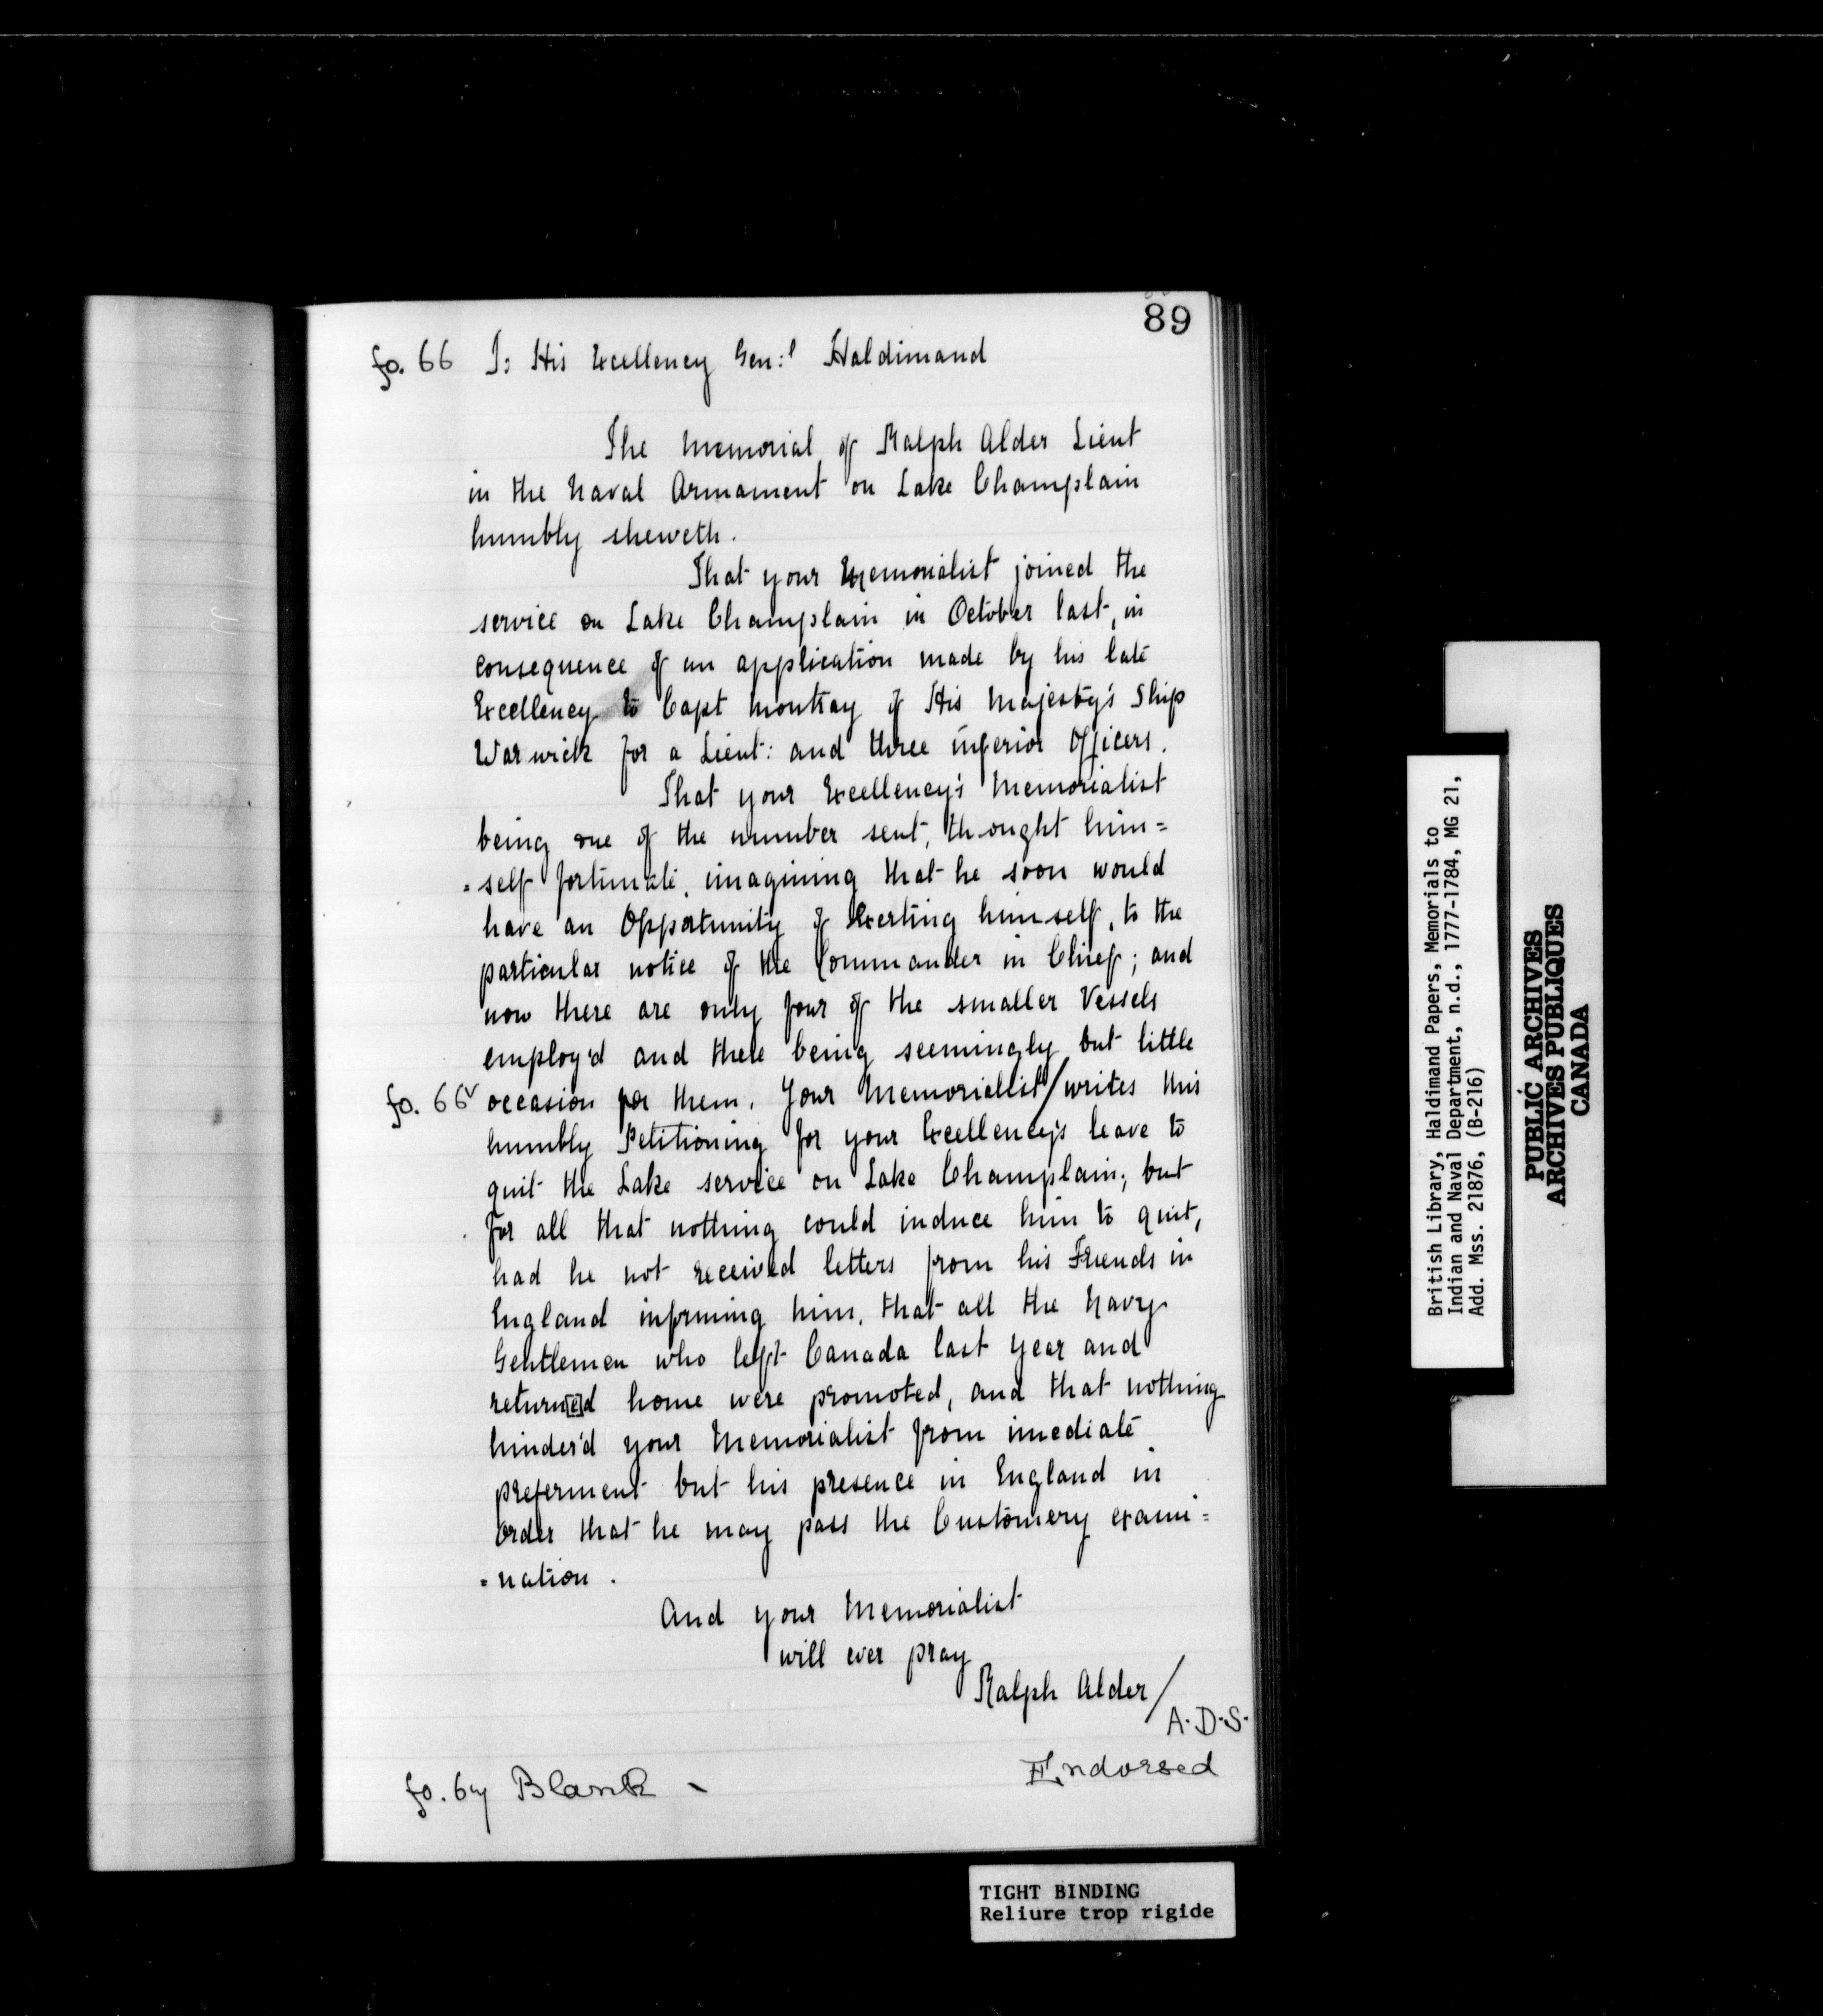 89
fo. 66 To His Excellency Gen:l Haldimand
The Memorial of Ralph Alder Lieut
in the Naval Armament on Lake Champlain
humbly sheweth.
That your Memorialist joined the
service on Lake Champlain in October last, in
consequence of an application made by his late
Excellency to Capt Moutray of His Majesty's Ship
Warwick for a Lieut: and three inferior Officers.
That your Excellency's Memorialist
being one of the number sent, thought him=
=self fortunate, imagining that he soon would
have an Opportunity of Exerting himself, to the
particular notice of the Commander in Chief; and
now there are only four of the smaller Vessels
employ'd and there being seemingly but little
fo. 66v occasion for them. Your Memorialist/writes this
humbly Petitioning for your Excellency's leave to
quit the Lake service on Lake Champlain; but
for all that nothing could induce him to quit,
had he not received letters from his Friends in
England informing him, that all the Navy
Gentlemen who left Canada last year and
return[e]d home were promoted, and that nothing
hinder'd your Memorialist from imediate
preferment but his presence in England in
order that he may pass the Customery exami=
=nation.
And your Memorialist
will ever pray
Ralph Alder/
A.D.S.
Endorsed
fo. 67 Blank -
British Library, Haldimand Papers, Memorials to
Indian and Naval Department, n.d., 1777-1784, MG 21,
Add. Mss. 21876, (B-216)
PUBLIC ARCHIVES
ARCHIVES PUBLIQUES
CANADA
TIGHT BINDING
Reliure trop rigide